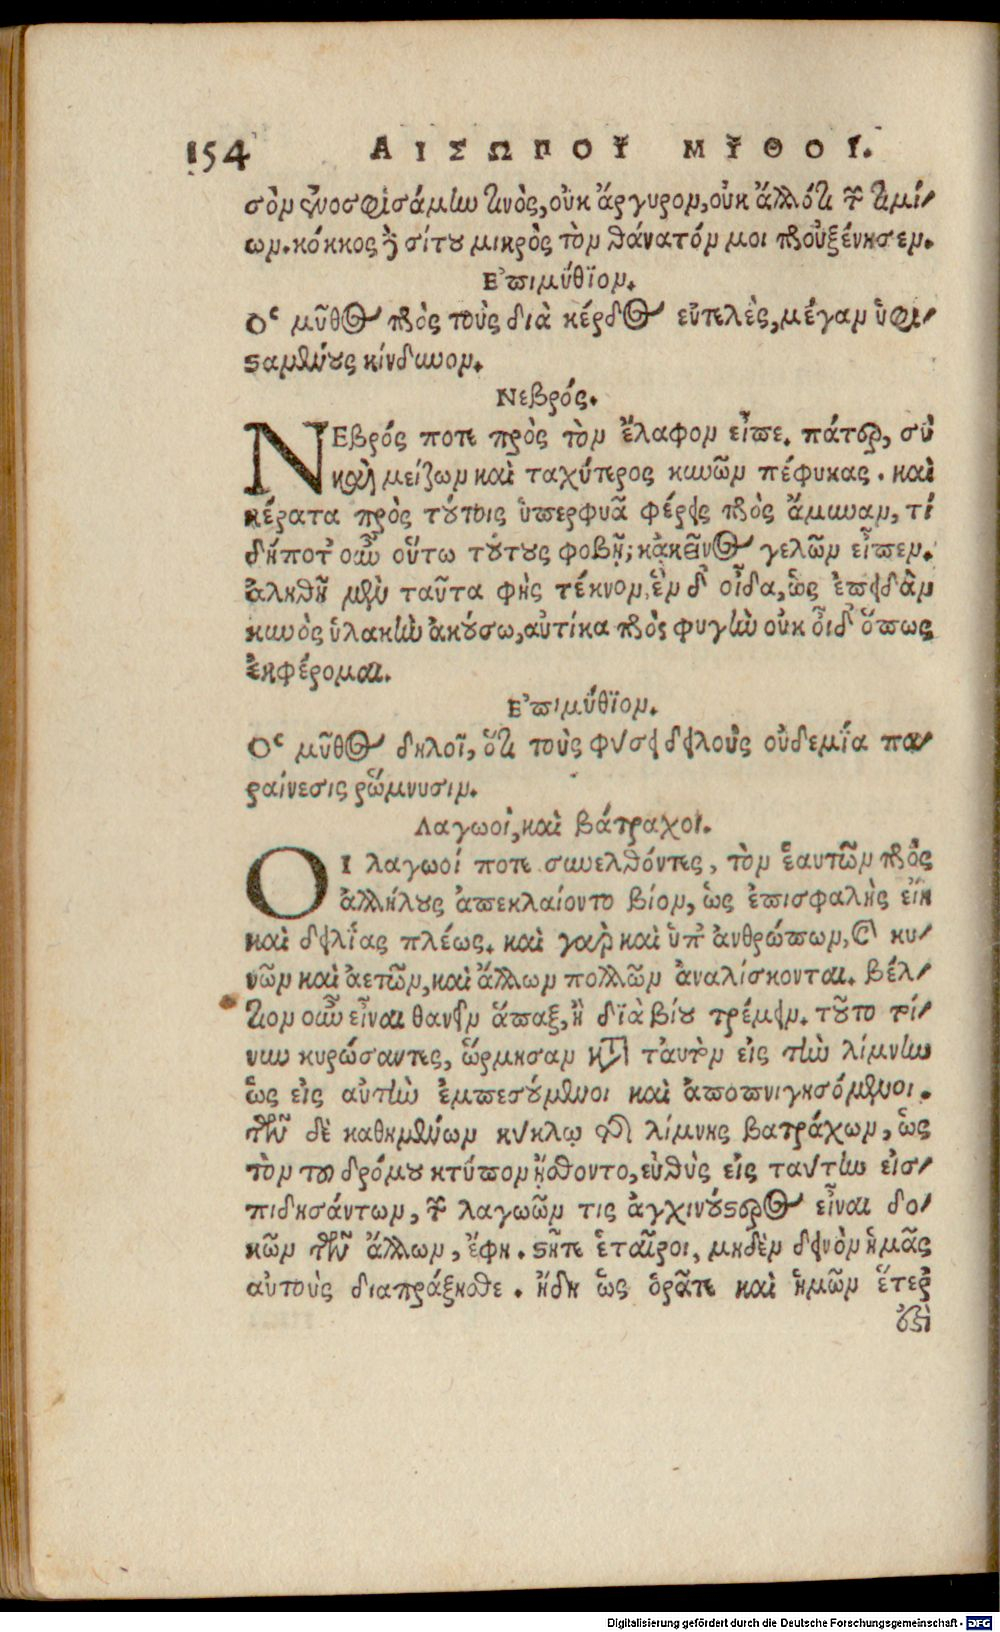 154 ΑΙΣΩΠΟΥ ΜΥΘΟΙ.
σὸν ἐνοσφισάμην τινὸς, οὐκ ἄργυρον, οὐκ ἄλλό τι τῶν τιμί-
ων. κόκκος δὲ σίτου μικρὸς τὸν θάνατόν μοι προὐξένησεν.
Ἐπιμύθϊον.
Ὁ μῦθος πρὸς τοὺς διὰ κέρδος εὐτελὲς, μέγαν ὑφι-
σταμένους κίνδυνον.
Νεβρός.
ΝΕβρός ποτε πρὸς τὸν ἔλαφον εἶπε. πάτερ, σὺ
καὶ μείζων καὶ ταχύτερος κυνῶν πέφυκας. καὶ
κέρατα πρὸς τούτοις ὑπερφυᾶ φέρεις πρὸς ἄμυναν, τί
δήποτ' οὖν οὕτω τούτους φοβῇ; κἀκεῖνος γελῶν εἶπεν.
ἀληθῆ μὲν ταῦτα φῂς τέκνον, ἓν δ' οἶδα, ὡς ἐπειδὰν
κυνὸς ὑλακὴν ἀκούσω, αὐτίκα πρὸς φυγὴν οὐκ οἶδ' ὅπως
ἐκφέρομαι.
Ἐπιμύθϊον.
Ὁ μῦθος δηλοῖ, ὅτι τοὺς φύσει δειλοὺς οὐδεμία πα-
ραίνεσις ῥώννυσιν.
Λαγωοί, καὶ βάτραχοι.
ΟΙ λαγωοί ποτε συνελθόντες, τὸν ἑαυτῶν πρὸς
ἀλλήλους ἀπεκλαίοντο βίον, ὡς ἐπισφαλὴς εἴη
καὶ δειλίας πλέως. καὶ γὰρ καὶ ὑπ' ἀνθρώπων, καὶ κυ-
νῶν καὶ ἀετῶν, καὶ ἄλλων πολλῶν ἀναλίσκονται. βέλ-
τιον οὖν εἶναι θανεῖν ἅπαξ, ἢ δϊὰ βίου τρέμειν. τοῦτο τοί-
νυν κυρώσαντες, ὥρμησαν κατὰ ταὐτὸν εἰς τὴν λίμνην
ὡς εἰς αὐτὴν ἐμπεσούμενοι καὶ ἀποπνιγησόμενοι.
τῶν δὲ καθημένων κύκλῳ τῆς λίμνης βατράχων, ὡς
τὸν τοῦ δρόμου κτύπον ᾔσθοντο, εὐθὺς εἰς ταύτην εἰσ-
πιδησάντων, τῶν λαγωῶν τις ἀγχινούστερος εἶναι δο-
κῶν τῶν ἄλλων, ἔφη. στῆτε ἑταῖροι, μηδὲν δεινὸν ἡμᾶς
αὐτοὺς διαπράξησθε. ἤδη ὡς ὁρᾶτε καὶ ἡμῶν ἕτερα
ἐστὶ
Digitalisierung gefördert durch die Deutsche Forschungsgemeinschaft - DFG